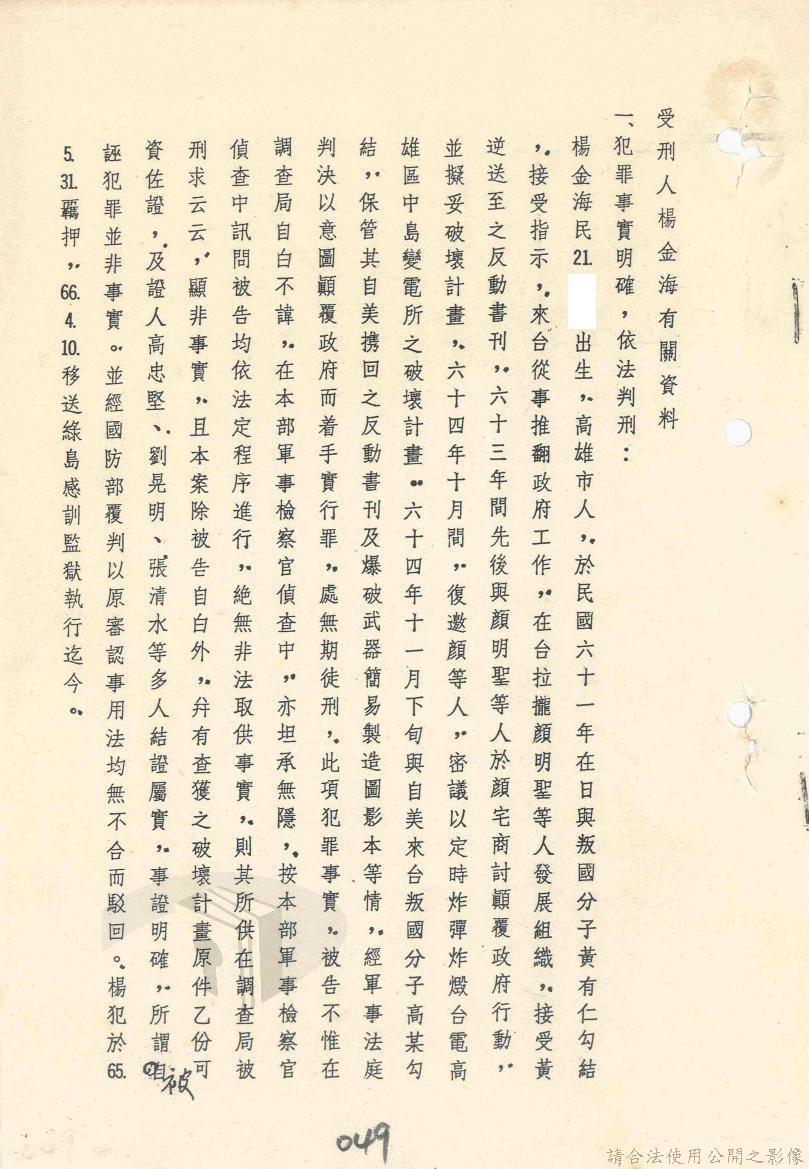 受刑人楊金海有關資料
一、犯罪事實明確，依法判刑：
楊金海民21.出生，高雄市人，於民國六十一年在日與叛國分子黃有仁勾結
，接受指示，來台從事推翻政府工作，在台拉攏顏明聖等人發展組織，接受黃
逆送至之反動書刊，六十三年間先後與顏明聖等人於顏宅商討顛覆政府行動，
並擬妥破壞計畫，六十四年十月間，復邀顏等人，密議以定時炸彈炸燬台電高
雄區中島變電所之破壞計畫。六十四年十一月下旬與自美來台叛國分子高某勾
結，保管其自美携回之反動書刊及爆破武器簡易製造圖影本等情，經軍事法庭
判決以意圖顛覆政府而着手實行罪，處無期徒刑，此項犯罪事實，被告不惟在
調查局自白不諱，在本部軍事檢察官偵查中，亦坦承無隱，按本部軍事檢察官
偵查中訊問被告均依法定程序進行，絕無非法取供事實，則其所供在調查局被
刑求云云，顯非事實，且本案除被告自白外，幷有查獲之破壞計畫原件乙份可
資佐證，及證人高忠堅、劉晃明、張清水等多人結證屬實，事證明確，所謂
被
誣犯罪並非事實。並經國防部覆判以原審認事用法均無不合而駁回。楊犯於65.
5.31.羈押，66.4.10.移送綠島感訓監獄執行迄今。
049
請合法使用公開之影像